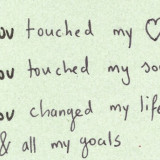 ou touched my ♡
ou touched my so
ou changed my life
& all my goals .